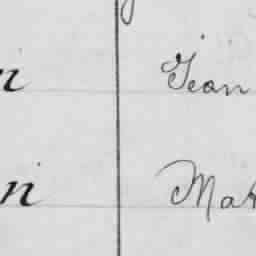 n Jean
ni Mar